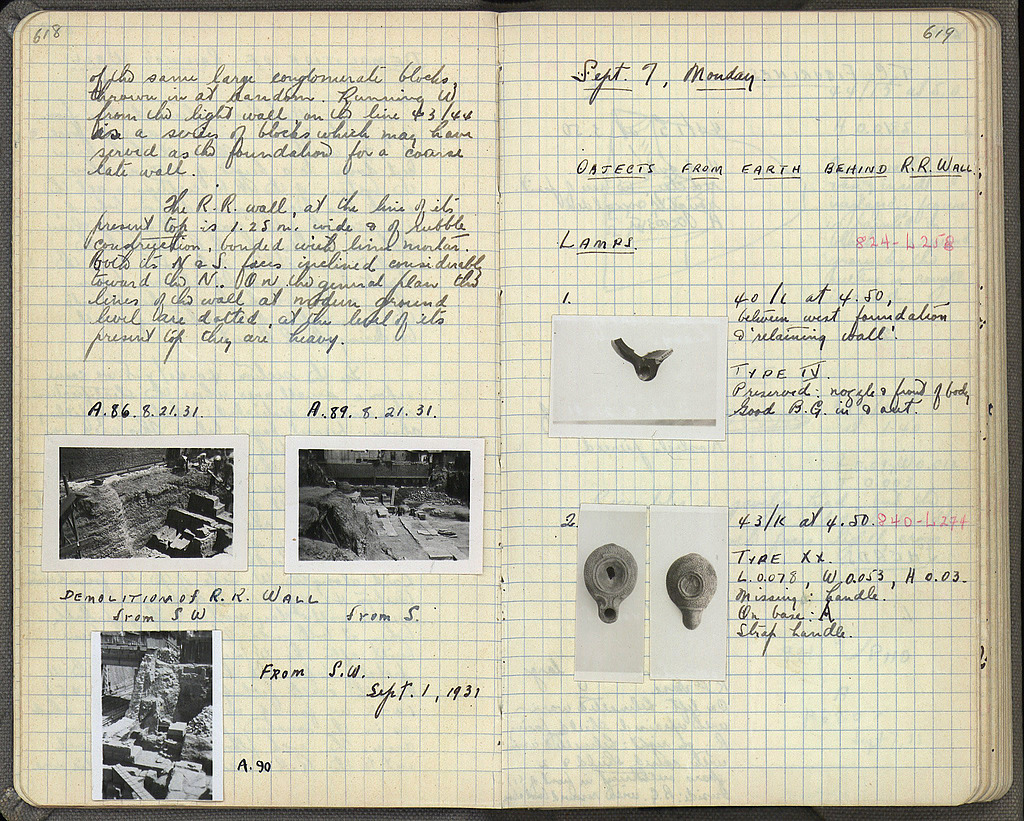 618
of the same large conglomerate blocks,
thrown in at random. Running W
from the light wall on the line 43/44
is a series of blocks which may have
served as the foundation for a coarse
late wall.
The R.R. wall, at the line of its
present top is 1.25 m. wide & of rubble
construction, bonded with lime mortar.
both its N & S. faces inclined considerably
toward the N. On the general plan the
lines of the wall at modern ground
level are dotted, at the level of its
present top they are heavy.
A.86. 8.21.31.
A.89. 8.21.31.
DEMOLITION of R.R. WALL
from SW
from S.
FROM S.W.
Sept. 1, 1931
A.90
619
Sept. 7, Monday
OBJECTS FROM EARTH BEHIND R.R. WALL:
LAMPS.
824-L258
1.
40/K at 4.50,
between west foundation
& 'retaining wall'.
TYPE IV.
Preserved: nozzle & front of body
Good B.G. in & out.
2.
43/K at 4.50. 840-L274
TYPE XX.
L. 0.078, W 0.053, H 0.03.
Missing: handle.
On base: A
Strap handle.